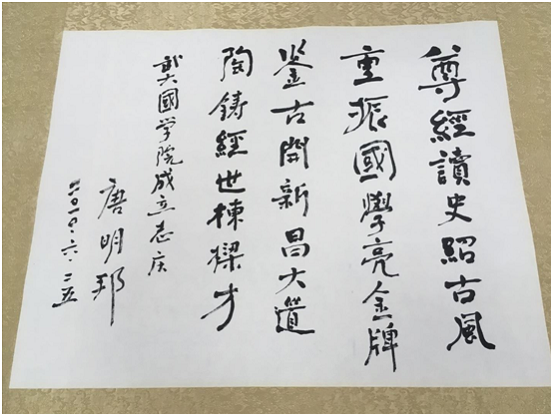 尊經讀史紹古風
重振國學亮金牌
鉴古開新昌大道
陶鋳經世棟樑才
武大國学院成立志庆
唐明邦
二〇一〇.六.二五